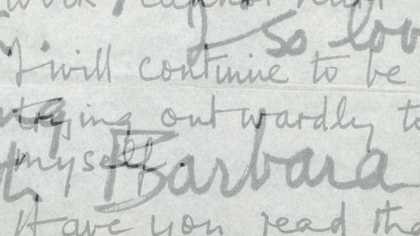 I so lov
I will continue to be
trying outwardly to
myself.
Barbara
Have you read the